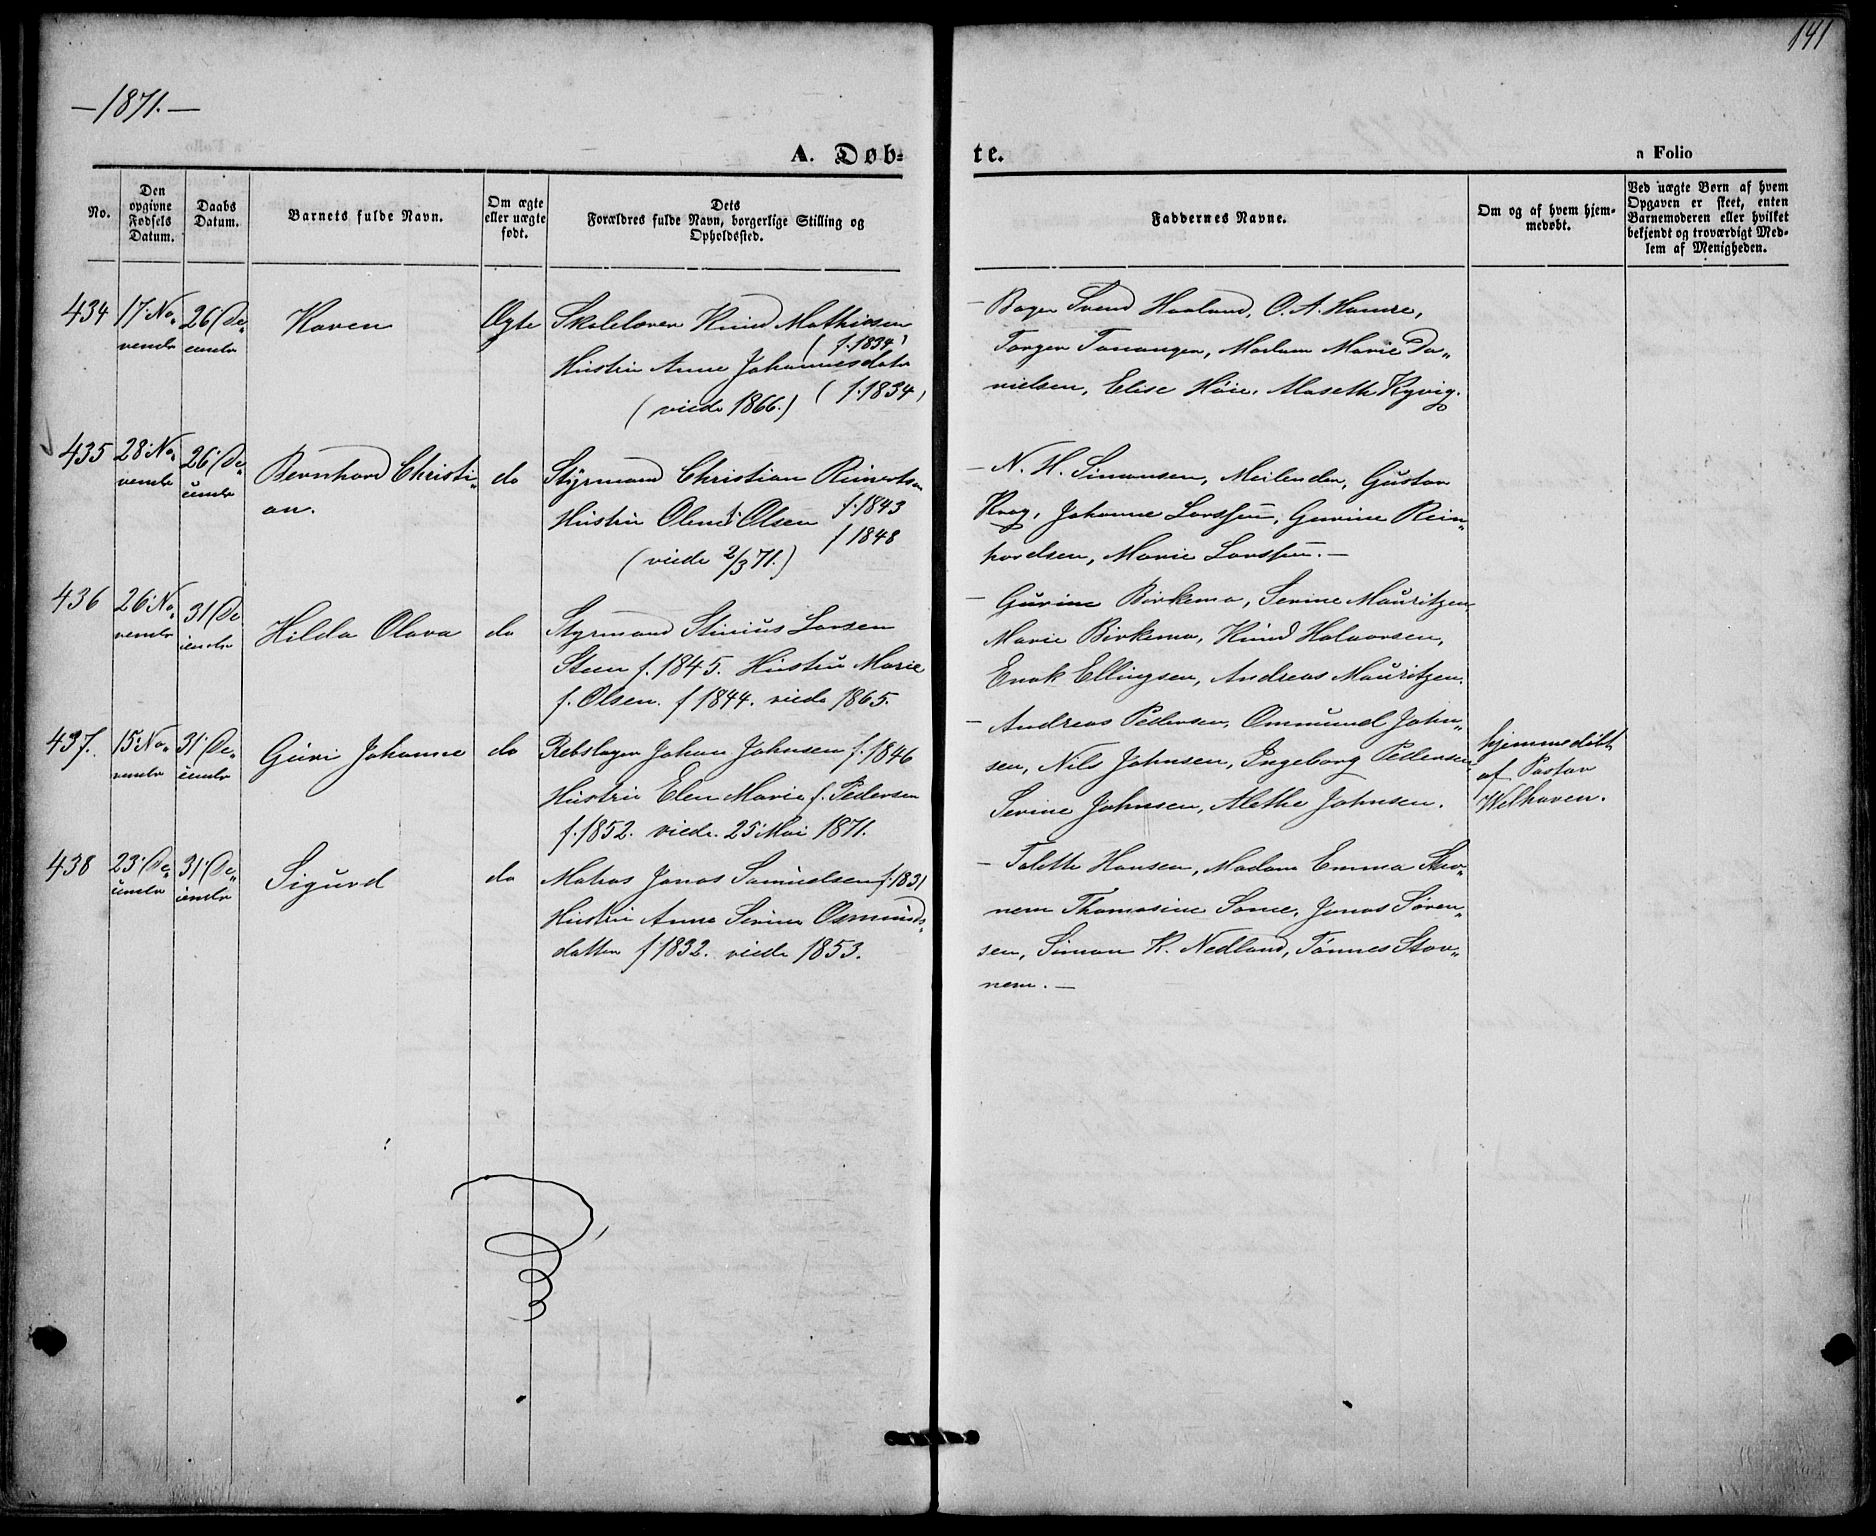 141
— 1871. —
A. Døb= te.
n Folio
No.
Den opgivne Fødsels Datum.
Daabs Datum.
Barnets fulde Navn.
Om ægte eller uægte født.
Dets Forældres fulde Navn, borgerlige Stilling og Opholdssted.
Faddernes Navne.
Om og af hvem hjemmedøbt.
Ved uægte Børn af hvem Opgaven er skeet, enten Barnemoderen eller hvilket bekjendt og troværdigt Medlem af Menigheden.
434 17 No„ 26 De„ Karen Ægte Skolelærer Knud Mathiesen
vembr cembr (f. 1834)
Hustru Anne Johannesdatr
(viede 1866.) (f. 1834)
— Bager Svend Haaland, O. A. Hamre,
Torger Tananger, Madam Marie Da„
nielsen, Elise Høie, Aaseth Kyvig.
435 28 No„ 26 De„ Bernhard Christi„ do Styrmand Christian Reinertsen
vembr cembr an. f. 1843
Hustru Olene f. Olsen f 1848
(viede 2/3 71.)
— N. H. Simonsen, Meilender, Gustav
Krog, Johanne Larssen, Gurine Rein„
hardsen, Marie Larssen. —
436 26 No„ 31 De Hilda Olava do Styrmand Stinius Larsen
vembr cembr
Steen f. 1845. Hustru Marie
f. Olsen. f 1844. viede 1865.
— Gurine Birkemo, Serine Mauritzen
Marie Birkemo, Knud Halvorsen,
Enok Ellingsen, Andreas Mauritzen.
437. 15 No„ 31 De„ Guri Johanne do Rebslager Johan Johnsen f. 1846
vembr cembr
Hustru Elen Marie f. Pedersen
f. 1852. viede. 25 Mai 1871.
— Andreas Pedersen, Ommund John„
sen, Nils Johnsen, Ingeborg Pedersen
Serine Johnsen, Alethe Johnsen.
hjemmedøbt
af Pastor
Welhaven.
438 23 De„ 31 De„ Sigurd do Matros Jonas Samuelsen f. 1831
cembr cembr
Hustru Anne Serine Osmunds„
datter f 1832. viede 1853.
— Talette Hansen, Madam Emma Stav„
nem Thomasine Some, Jonas Søren„
sen, Simon K. Nedland, Tønnes Stav„
nem. —